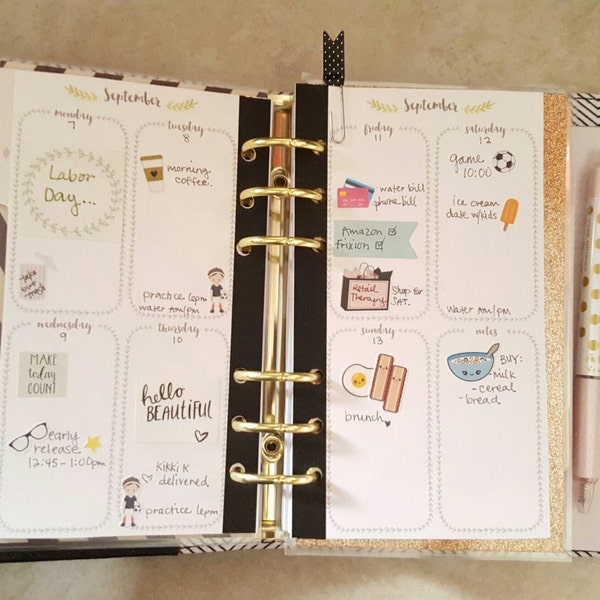 September
monday
7
Labor
Day...
take
out
trash
tuesday
8
morning
coffee.
practice 6pm
water am/pm
wednesday
9
MAKE
today
COUNT
early
release
12:45-1:00pm
thursday
10
hello
BEAUTIFUL
Kikki K
delivered
practice 6pm
September
friday
11
water bill
phone bill
Amazon
frixion
Retail
Therapy
Shop for
SAT.
saturday
12
game
10:00
ice cream
date w/kids
Water am/pm
sunday
13
brunch
notes
BUY:
- milk
- cereal
- bread